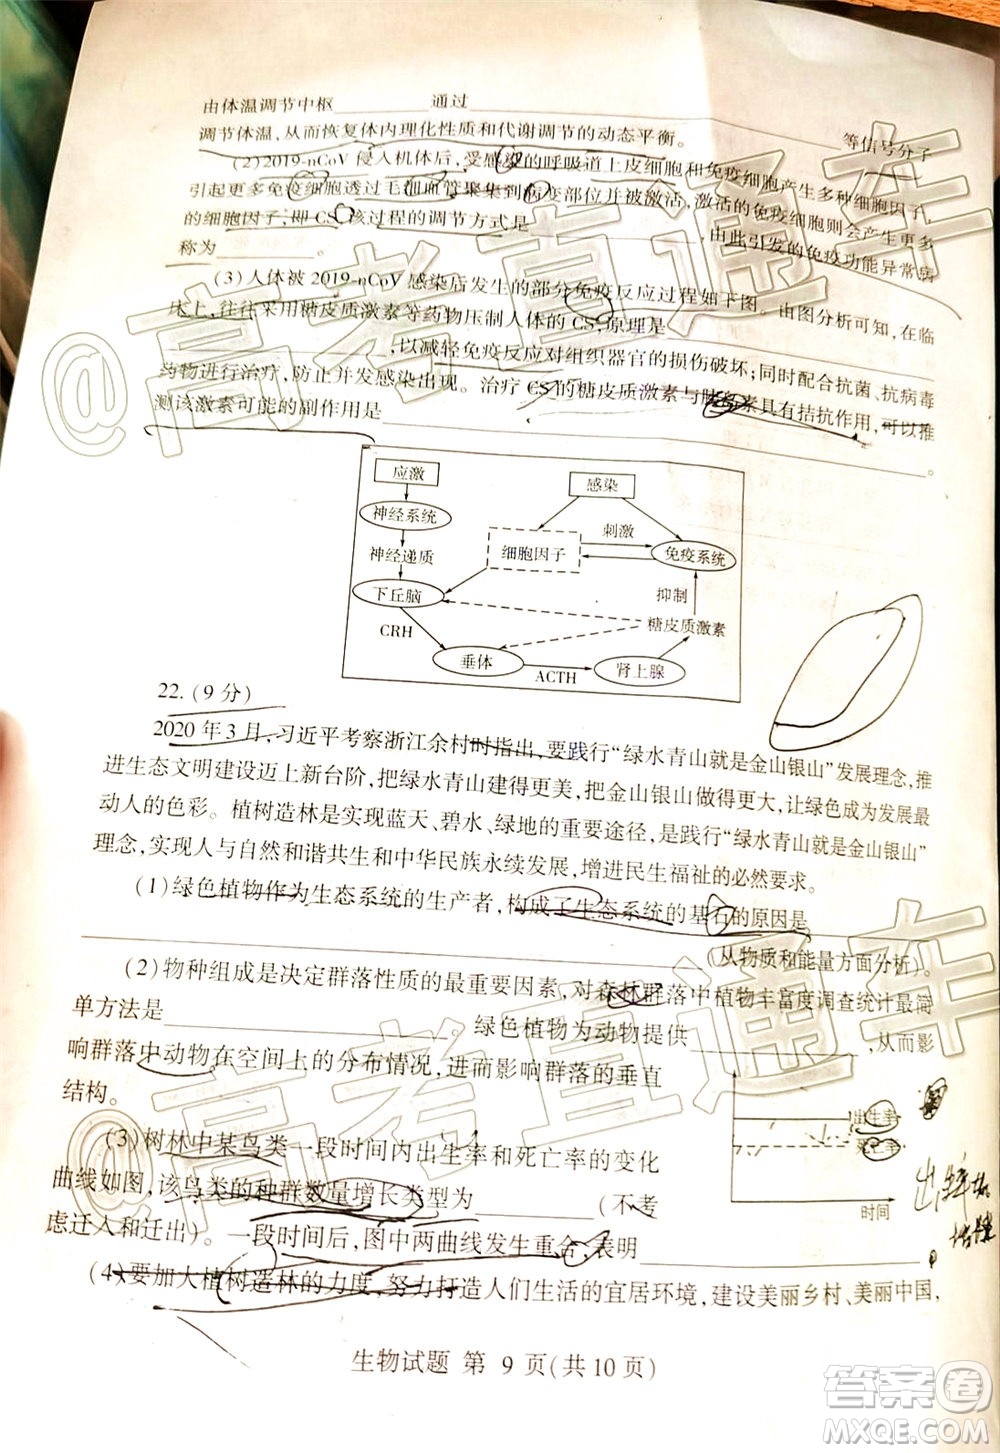 由体温调节中枢________通过________等信号分子
调节体温,从而恢复体内理化性质和代谢调节的动态平衡。
(2)2019-nCoV 侵入机体后,受感染的呼吸道上皮细胞和免疫细胞产生多种细胞因子
引起更多免疫细胞透过毛细血管聚集到病变部位并被激活,激活的免疫细胞则会产生更多
的细胞因子,即 CS,该过程的调节方式是________,由此引发的免疫功能异常病
称为________。
(3)人体被 2019-nCoV 感染后发生的部分免疫反应过程如下图。由图分析可知,在临
床上,往往采用糖皮质激素等药物压制人体的 CS,原理是________
________,以减轻免疫反应对组织器官的损伤破坏;同时配合抗菌、抗病毒
药物进行治疗,防止并发感染出现。治疗 CS 的糖皮质激素与胰岛素具有拮抗作用,可以推
测该激素可能的副作用是________。
应激
感染
神经系统
刺激
细胞因子
免疫系统
神经递质
抑制
下丘脑
糖皮质激素
CRH
垂体
ACTH
肾上腺
22.(9 分)
2020 年 3 月,习近平考察浙江余村时指出,要践行“绿水青山就是金山银山”发展理念,推
进生态文明建设迈上新台阶,把绿水青山建得更美,把金山银山做得更大,让绿色成为发展最
动人的色彩。植树造林是实现蓝天、碧水、绿地的重要途径,是践行“绿水青山就是金山银山”
理念,实现人与自然和谐共生和中华民族永续发展,增进民生福祉的必然要求。
(1)绿色植物作为生态系统的生产者,构成了生态系统的基石的原因是
________(从物质和能量方面分析)。
(2)物种组成是决定群落性质的最重要因素,对森林群落中植物丰富度调查统计最简
单方法是________。绿色植物为动物提供________,从而影
响群落中动物在空间上的分布情况,进而影响群落的垂直
结构。
出生率
死亡率
时间
(3)树林中某鸟类一段时间内出生率和死亡率的变化
曲线如图,该鸟类的种群数量增长类型为________(不考
虑迁入和迁出)。一段时间后,图中两曲线发生重合,表明________。
(4)要加大植树造林的力度,努力打造人们生活的宜居环境,建设美丽乡村、美丽中国,
生物试题 第 9 页(共 10 页)
@高考直通车
@高考直通车
答案卷
MXQE.COM